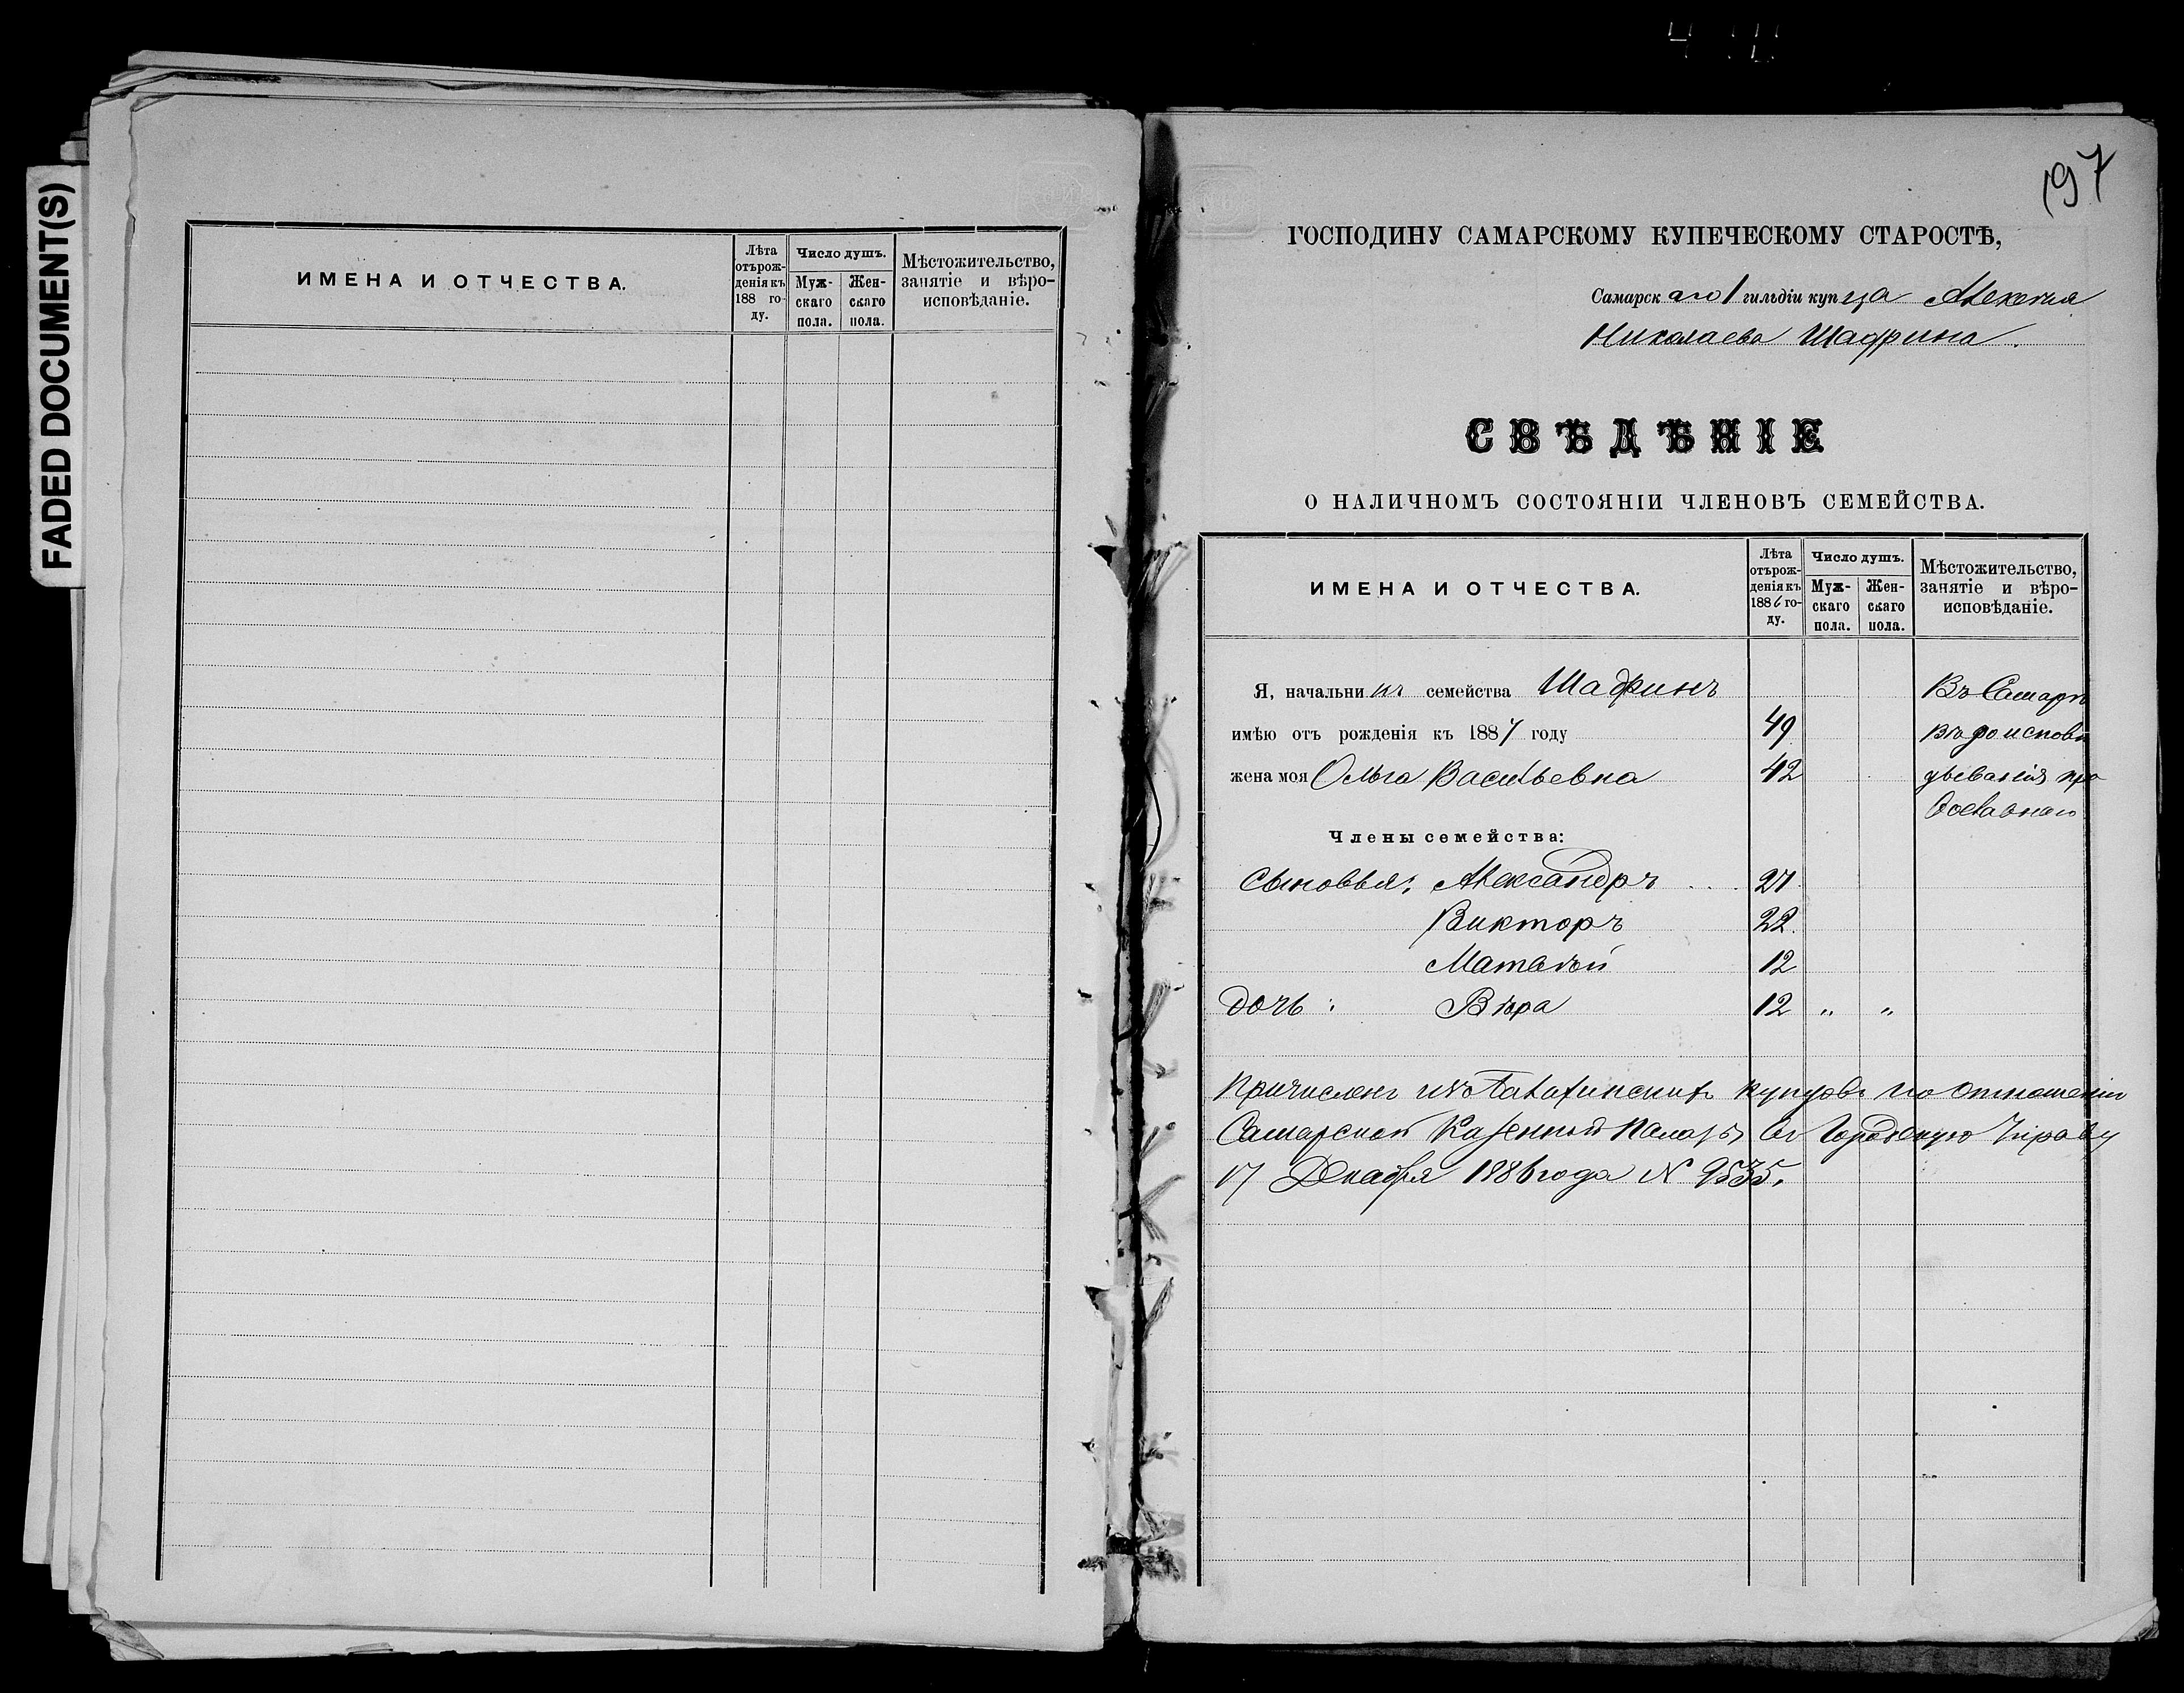 FADED DOCUMENT(S)
ИМЕНА И ОТЧЕСТВА.
Лѣта
отъ рож-
денія къ
188 го-
ду.
Число душъ.
Муж-
скаго
пола.
Жен-
скаго
пола.
Мѣстожительство,
занятіе и вѣро-
исповѣданіе.
197
ГОСПОДИНУ САМАРСКОМУ КУПЕЧЕСКОМУ СТАРОСТѢ,
Самарскаго 1 гильдіи купца Алексѣя
Николаева Шадрина.
СВѢДѢНІЕ
О НАЛИЧНОМЪ СОСТОЯНІИ ЧЛЕНОВЪ СЕМЕЙСТВА.
ИМЕНА И ОТЧЕСТВА.
Лѣта
отъ рож-
денія къ
1886 го-
ду.
Число душъ.
Муж-
скаго
пола.
Жен-
скаго
пола.
Мѣстожительство,
занятіе и вѣро-
исповѣданіе.
Я, начальникъ семейства Шадринъ Въ Самарѣ
имѣю отъ рожденія къ 1887 году 49 Вѣроисповѣ
жена моя Ольга Васильевна 42 дыванія пра
вославнаго
Члены семейства:
Сыновья: Александръ 27
Викторъ 22.
Матвѣй 12
дочь: Вѣра 12 „ „
Причисленъ изъ купцовъ по отношенію
Самарской Казенной Палаты въ Городскую Управу
17 Декабря 1886 года N 9535.